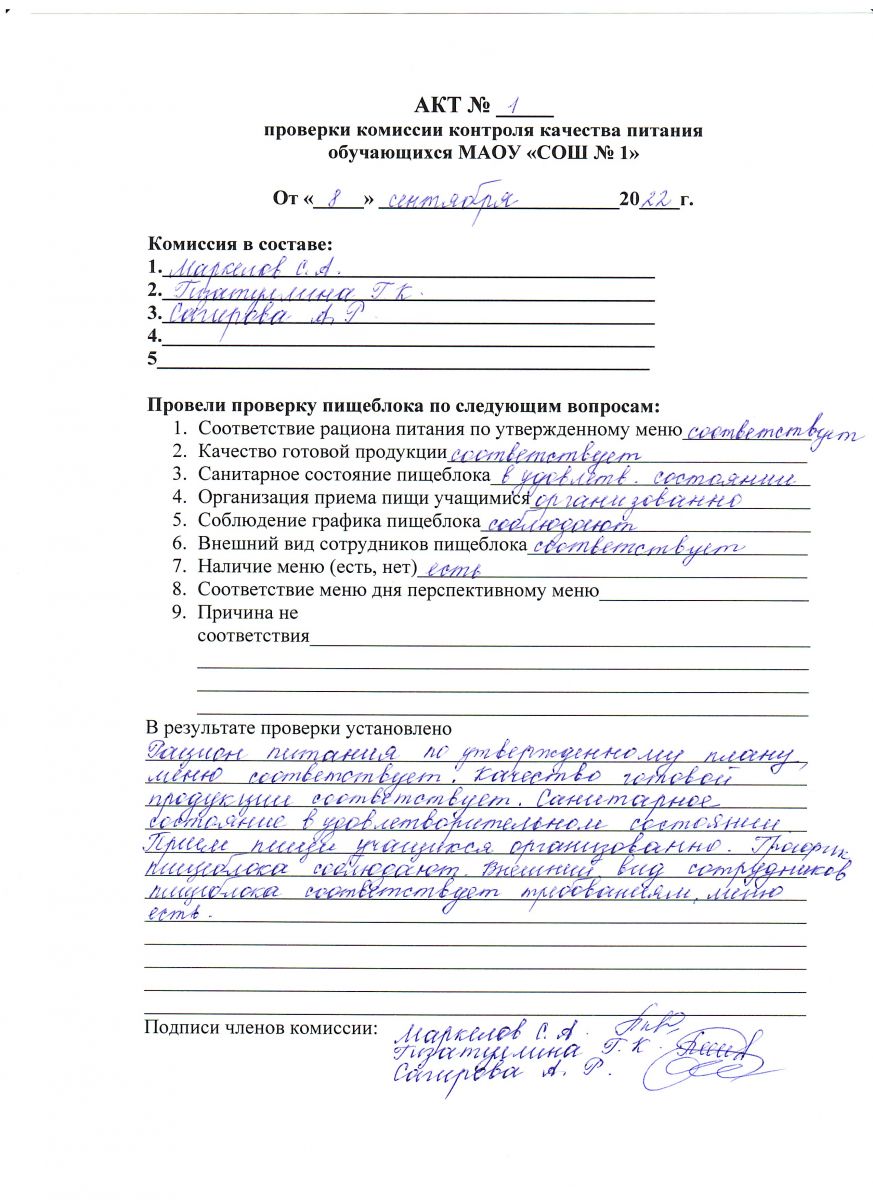 АКТ № 1
проверки комиссии контроля качества питания
обучающихся МАОУ «СОШ № 1»
От « 8 » сентября 2022 г.
Комиссия в составе:
1. Маркелов С.А.
2. Гизатуллина Г.К.
3. Сагирова А.Р.
4.
5
Провели проверку пищеблока по следующим вопросам:
1. Соответствие рациона питания по утвержденному меню соответствует
2. Качество готовой продукции соответствует
3. Санитарное состояние пищеблока в удовлетв. состоянии
4. Организация приема пищи учащимися организованно
5. Соблюдение графика пищеблока соблюдают
6. Внешний вид сотрудников пищеблока соответствует
7. Наличие меню (есть, нет) есть
8. Соответствие меню дня перспективному меню
9. Причина не
соответствия
В результате проверки установлено
Рацион питания по утвержденному плану,
меню соответствует. Качество готовой
продукции соответствует. Санитарное
состояние в удовлетворительном состоянии
Прием пищи учащихся организованно. График
пищеблока соблюдают. Внешний вид сотрудников
пищеблока соответствует требованиям, меню
есть.
Подписи членов комиссии: Маркелов С.А.
Гизатуллина Г.К.
Сагирова А.Р.